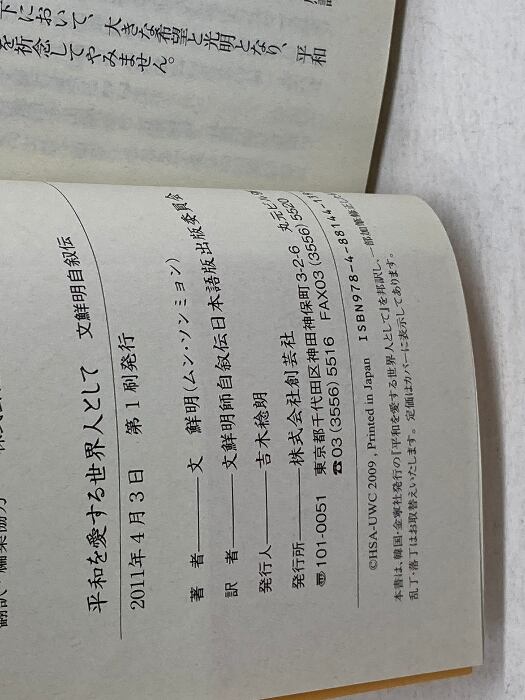 下において、大きな希望と光明となり、平和
を祈念してやみません。
平和を愛する世界人として 文鮮明自叙伝
2011年4月3日 第1刷発行
著 者 文 鮮明(ムン・ソンミョン)
訳 者 文鮮明師自叙伝日本語版出版委員会
発行人 吉木稔朗
発行所 株式会社創芸社
〒101-0051 東京都千代田区神田神保町3-2-6 丸元ビル
☎03(3556)5516 FAX03(3556)5520
©HSA-UWC 2009, Printed in Japan ISBN978-4-88144-1
本書は、韓国・金寧社発行の『平和を愛する世界人として』を邦訳し、一部加筆修正
乱丁・落丁はお取替えいたします。定価はカバーに表示してあります。